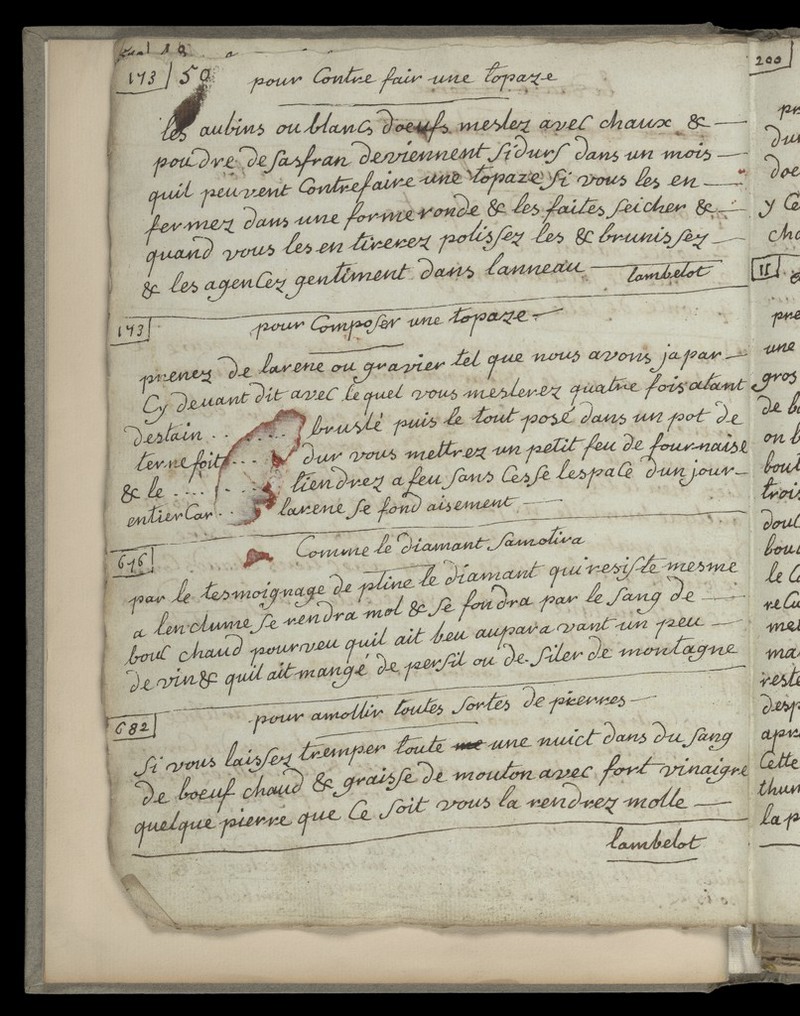 173 50 pour Contre fair une topaze
les aubins ou blancs doeufs meslez avec chaux &
poudre de Sasfran deviennent Si durs dans un mois
quil peuvent Contrefaire une topaze Si vous les en
fermez dans une forme ronde & les faites Seicher &
quand vous les en tirerez polissez les & brunissez
& les agencez gentiment dans lanneau lambelot
173 pour Composer une topaze
prenez de larene ou gravier tel que nous avons ja par
Cy devant dit avec lequel vous meslerez quatre fois atant
destain . . . . . . bruslé puis le tout posé dans un pot de
terne foit . . . . dur vous mettrez un petit feu de fournaise
& le . . . . . . . . tiendrez a feu sans Cesse lespace dun jour
entier Car . . larene Se fond aisement
676 Comme le diamant Samolira
par le tesmoignage de pline le diamant qui resiste mesme
a lenclume Se rendra mol & Se fondra par le Sang de
bouc chaud pourveu quil ait beu aupara vant un peu
de vin & quil ait mangé de persil ou de Siler de montagne
682 pour amollir toutes Sortes de pierres
Si vous laissez tremper toute une nuict dans du Sang
de boeuf chaud & graisse de mouton avec fort vinaigre
quelque pierre que Ce Soit vous la rendrez molle
lambelot
200
pr
dur
doe
y Ce
cha
II
pre
une
gros
de b
on b
bout
trois
douc
bou
le C
re Cu
met
ma
reste
desp
apr
Cette
thur
la p